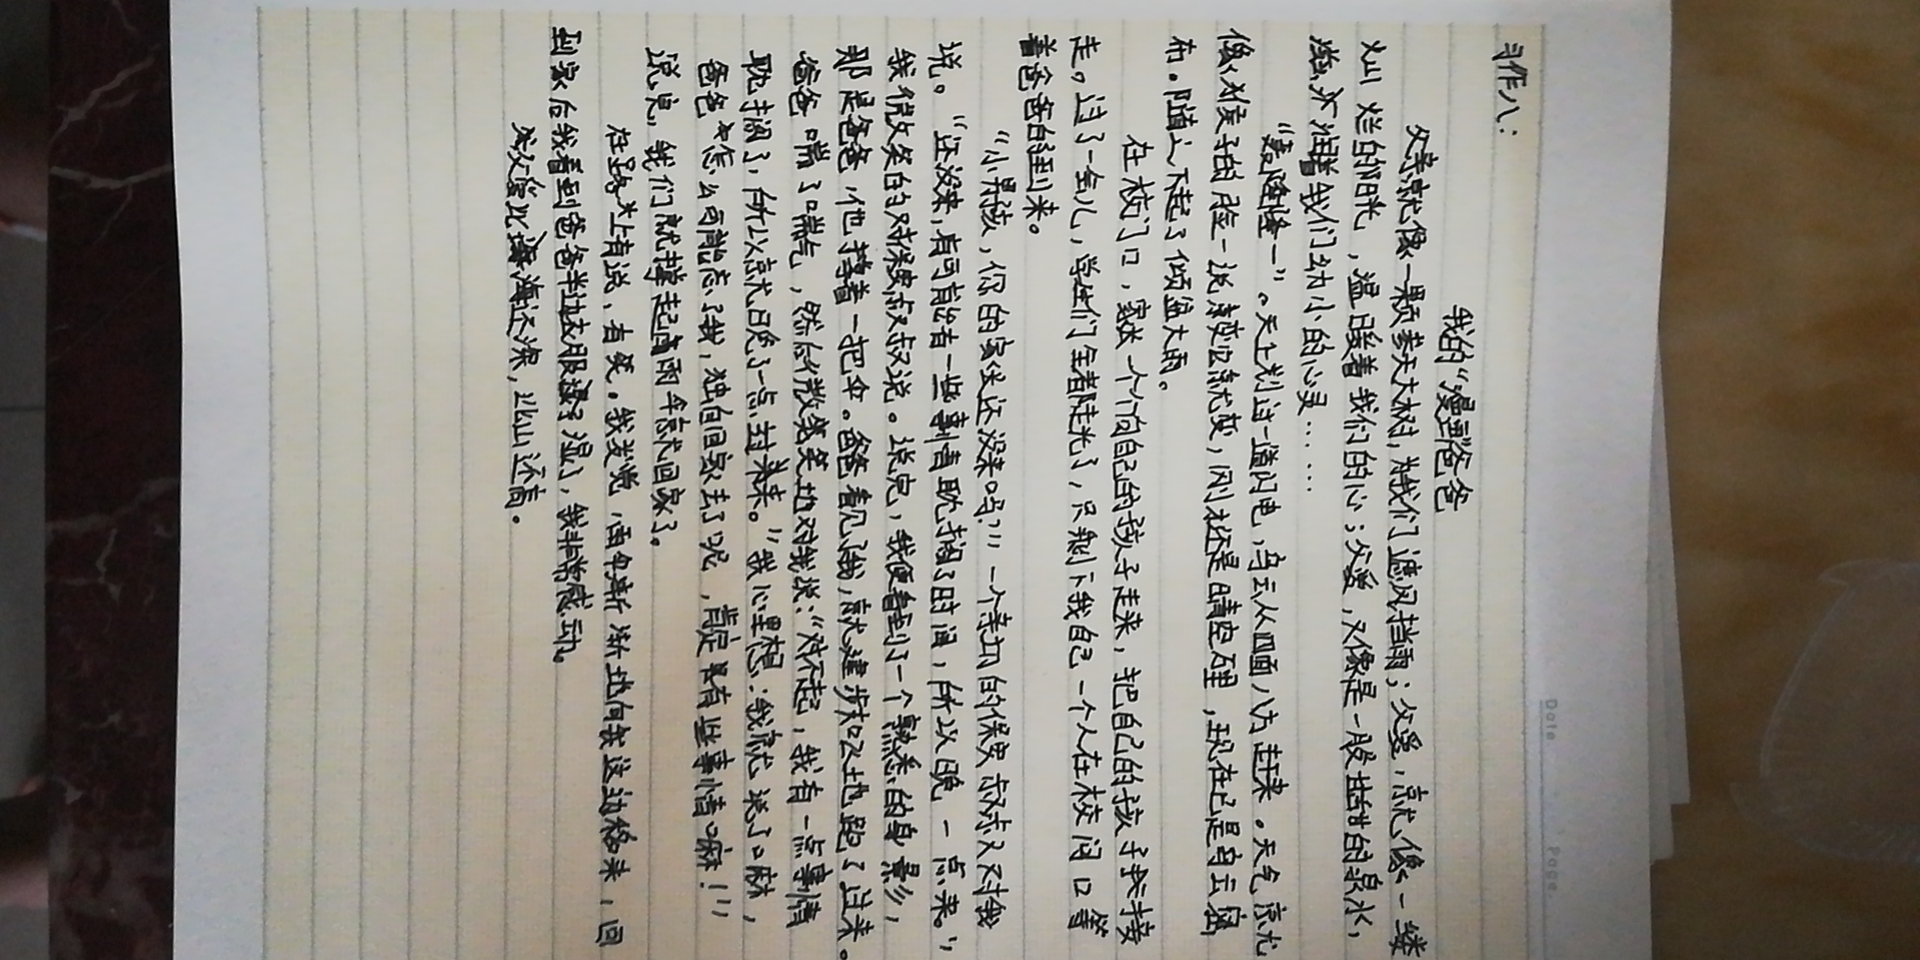 习作八：
我的“漫画”爸爸
父亲就像一颗参天大树，为我们遮风挡雨；父爱，就像一缕
灿烂的阳光，温暖着我们的心；父爱，又像是一股甘甜的泉水，
滋润着我们幼小的心灵……
“轰隆隆一”。天上划过一道闪电，乌云从四面八方赶来。天气就
像猴子的脸一说变就变，刚才还是晴空万里，现在已是乌云密
布。随之下起了倾盆大雨。
在校门口，家长一个个向自己的孩子走来，把自己的孩子接
走。过了一会儿，学生们全都走光了，只剩下我自己一个人在校门口等
着爸爸的到来。
“小男孩，你的家长还没来吗？”一个亲切的保安叔叔对我
说。“还没来，有可能有一些事情耽搁了时间，所以晚一点来。”
我微笑的对保安叔叔说。说完，我便看到了一个熟悉的身影，
那是爸爸，他撑着一把伞。爸爸看见了我，就健步如飞地跑了过来。
爸爸喘了喘气，然后微笑地对我说：“对不起，我有一点事情
耽搁了，所以就晚了一点过来。”我心里想：我就说了嘛，
爸爸怎么可能忘了我，独自回家去了呢，肯定是有些事情嘛！”
说完，我们就撑起雨伞就回家了。
在路上有说，有笑。我发觉，雨伞渐渐地向我这边移来，回
到家后我看到爸爸半边衣服湿了，我非常感动。
父爱比海还深，比山还高。